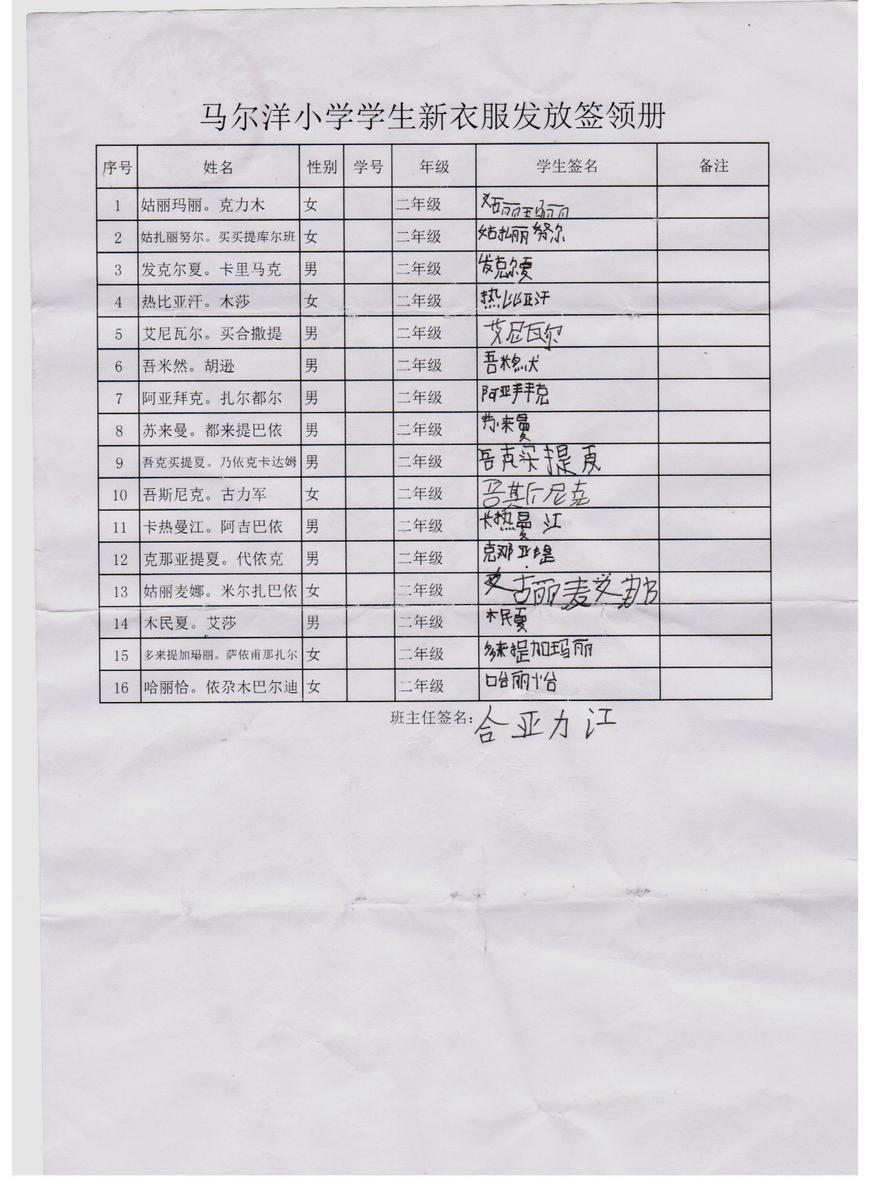 马尔洋小学学生新衣服发放签领册
序号 姓名 性别 学号 年级 学生签名 备注
1 姑丽玛丽。克力木 女 二年级 姑丽玛丽
2 姑扎丽努尔。买买提库尔班 女 二年级 姑扎丽努尔
3 发克尔夏。卡里马克 男 二年级 发克尔夏
4 热比亚汗。木莎 女 二年级 热比亚汗
5 艾尼瓦尔。买合撒提 男 二年级 艾尼瓦尔
6 吾米然。胡逊 男 二年级 吾米然
7 阿亚拜克。扎尔都尔 男 二年级 阿亚拜克
8 苏来曼。都来提巴依 男 二年级 苏来曼
9 吾克买提夏。乃依克卡达姆 男 二年级 吾克买提夏
10 吾斯尼克。古力军 女 二年级 吾斯尼克
11 卡热曼江。阿吉巴依 男 二年级 卡热曼江
12 克那亚提夏。代依克 男 二年级 克那亚提
13 姑丽麦娜。米尔扎巴依 女 二年级 姑丽麦娜
14 木民夏。艾莎 男 二年级 木民夏
15 多来提加玛丽。萨依甫那扎尔 女 二年级 多来提加玛丽
16 哈丽恰。依尕木巴尔迪 女 二年级 哈丽恰
班主任签名：合亚力江